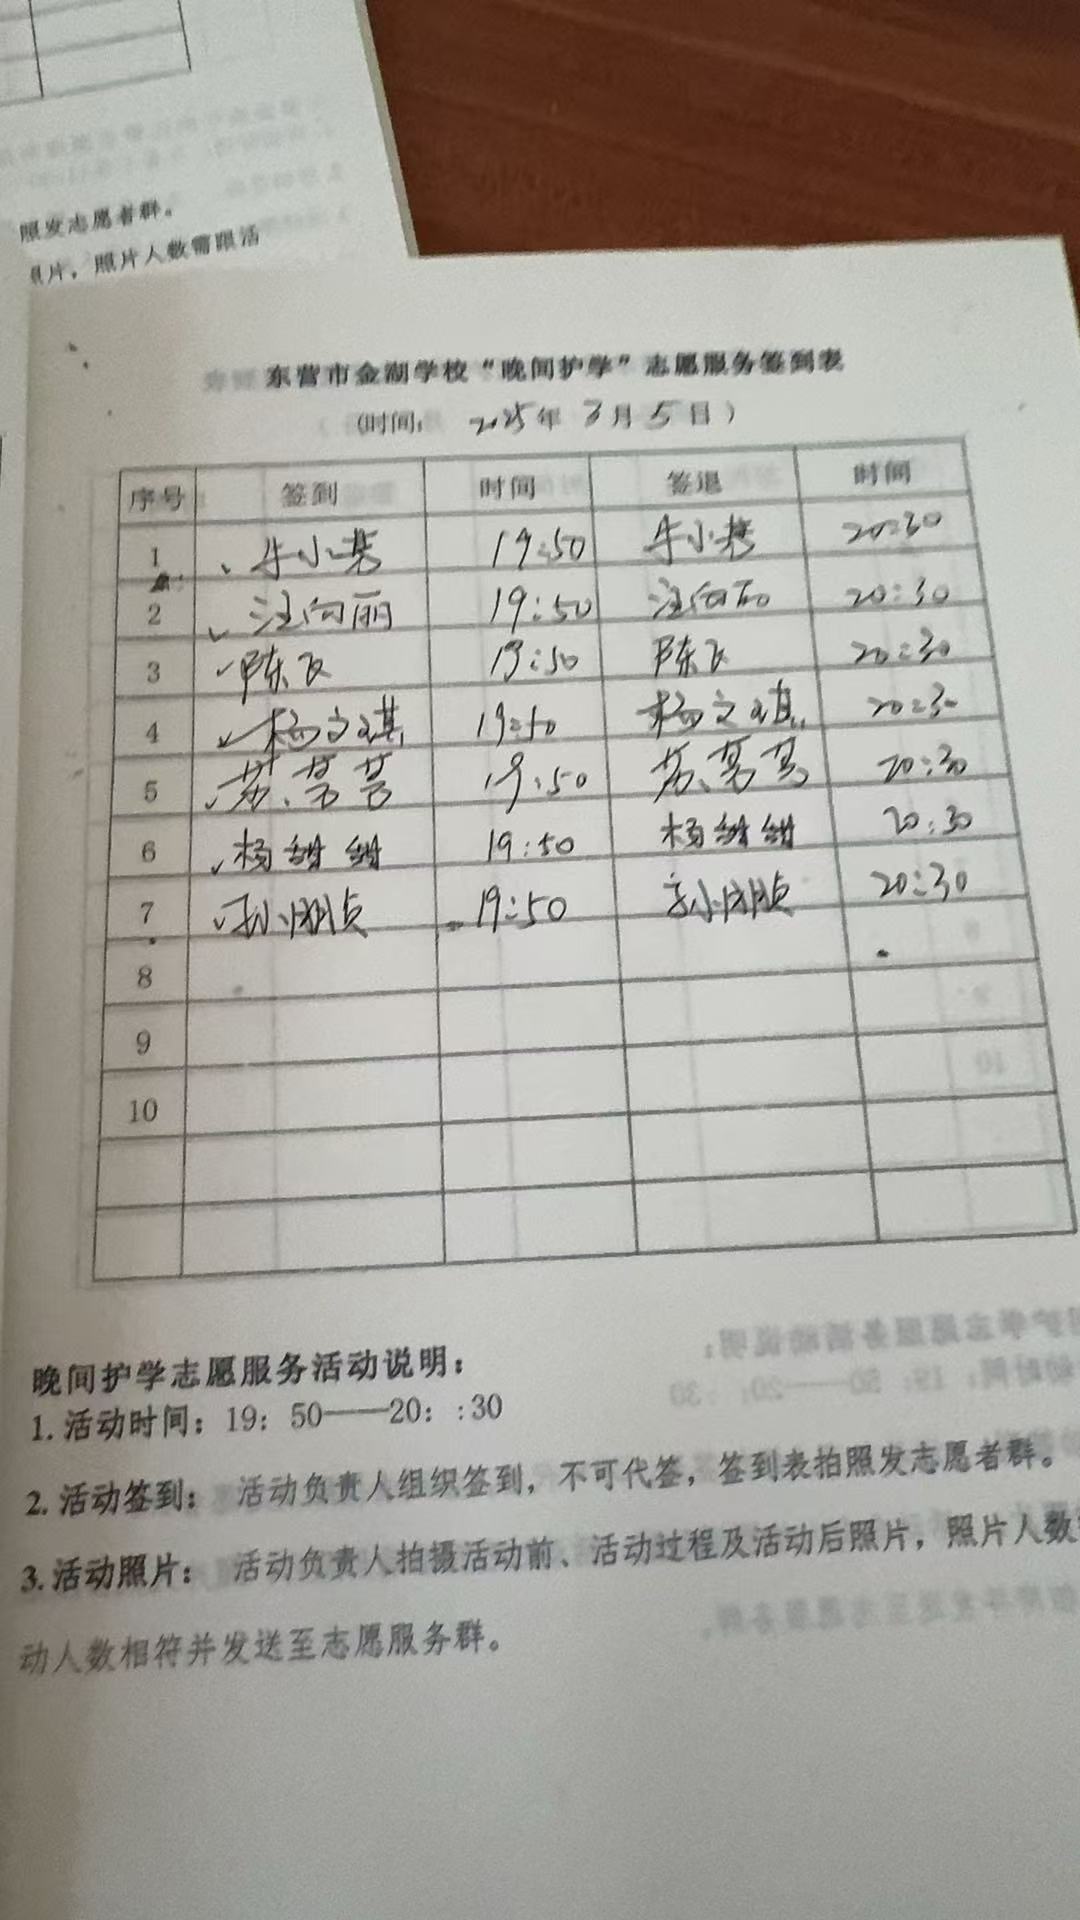 照发志愿者群。
片，照片人数需跟活
东营市金湖学校“晚间护学”志愿服务签到表
(时间: 2025年 3月 5日)
序号 签到 时间 签退 时间
1 牛小 19:50 牛小 20:30
2 汪向丽 19:50 汪向丽 20:30
3 陈飞 19:50 陈飞 20:30
4 杨文琪 19:50 杨文琪 20:30
5 19:50 20:30
6 杨甜甜 19:50 杨甜甜 20:30
7 孙 19:50 孙 20:30
8
9
10
晚间护学志愿服务活动说明：
1. 活动时间：19：50——20：:30
2. 活动签到： 活动负责人组织签到，不可代签，签到表拍照发志愿者群。
3. 活动照片： 活动负责人拍摄活动前、活动过程及活动后照片，照片人数
动人数相符并发送至志愿服务群。